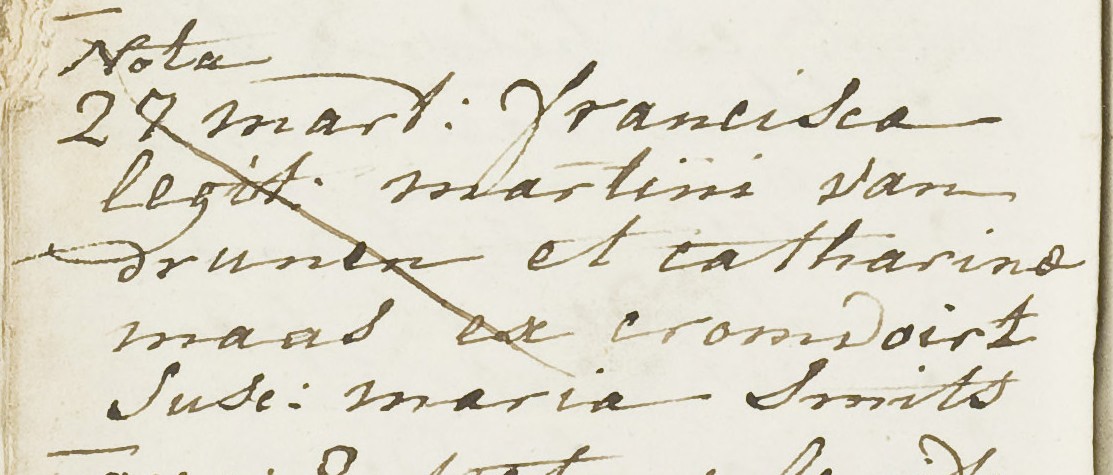 Nota
27 mart: Francisca
legit: martini van
drunen et catharinæ
maas ex cromvoirt
Susc: maria Smits